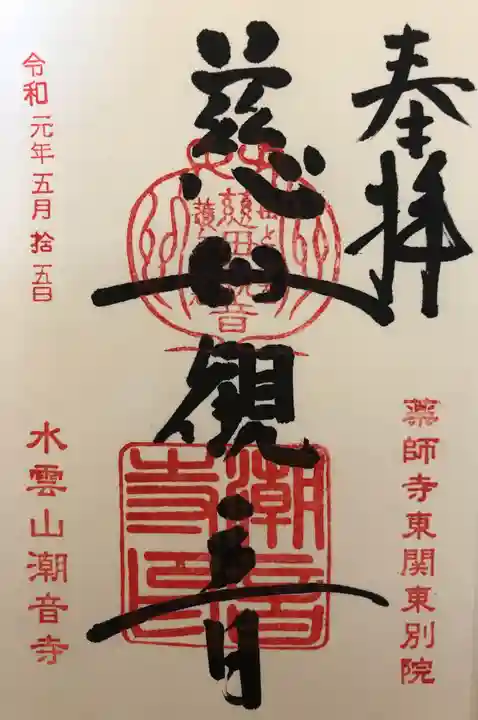 奉拝
薬師寺東関東別院
慈母観音
潮音寺印
水雲山潮音寺
令和元年五月拾五日